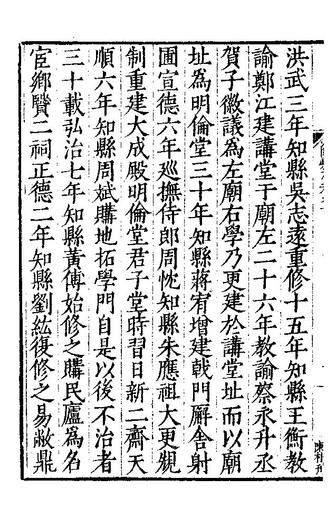 洪武三年知縣吳志遠重修十五年知縣王衡教
諭鄭江建講堂于廟左二十六年教諭蔡永升丞
賀子徽議為左廟右學乃更建於講堂址而以廟
址為明倫堂三十年知縣蔣宥增建戟門廨舍射
圃宣德六年巡撫侍郎周忱知縣朱應祖大更䂓
制重建大成殿明倫堂君子堂時習日新二齋天
順六年知縣周斌購地拓學門自是以後不治者
三十載弘治七年知縣黄傅始修之購民廬為名
宦鄉賢二祠正德二年知縣劉紘復修之易敝鼎